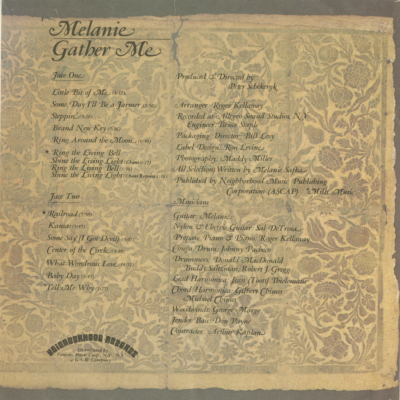 Melanie
Gather Me
Side One
Little Bit of Me
Some Day I'll Be a Farmer
Steppin'
Brand New Key
Ring Around the Moon
Ring the Living Bell
Shine the Living Light (Chant)
Ring the Living Bell
Shine the Living Light (Chant Reprise)
Side Two
Railroad
Kansas
Some Say (I Got Devil)
Center of the Circle
What Wondrous Love
Baby Day
Tell Me Why
NEIGHBORHOOD RECORDS
Distributed by
Famous Music Corp., N.Y., N.Y.
a G+W Company
Produced & Directed by
Peter Schekeryk
Arranger: Roger Kellaway
Recorded at: Allegro Sound Studios, N.Y.
Engineer: Bruce Staple
Packaging Director: Bill Levy
Label Design: Ron Levine
Photography: Maddy Miller
All Selections Written by Melanie Safka
Published by Neighborhood Music Publishing
Corporation (ASCAP)
Musicians
Guitar: Melanie
Nylon & Electric Guitar: Sal DeTroia
Organ, Piano & Roger Kellaway
Conga Drum: Johnny Pacheco
Drummers: Donald MacDonald
Buddy Saltzman, Robert J. Gregg
Lead Harmonica: Jean (Toots) Thielemans
Chord Harmonica:
Michael Chimes
Woodwinds: George Marge
Fender Bass: Don Payne
Contractor: Arthur Kaplan